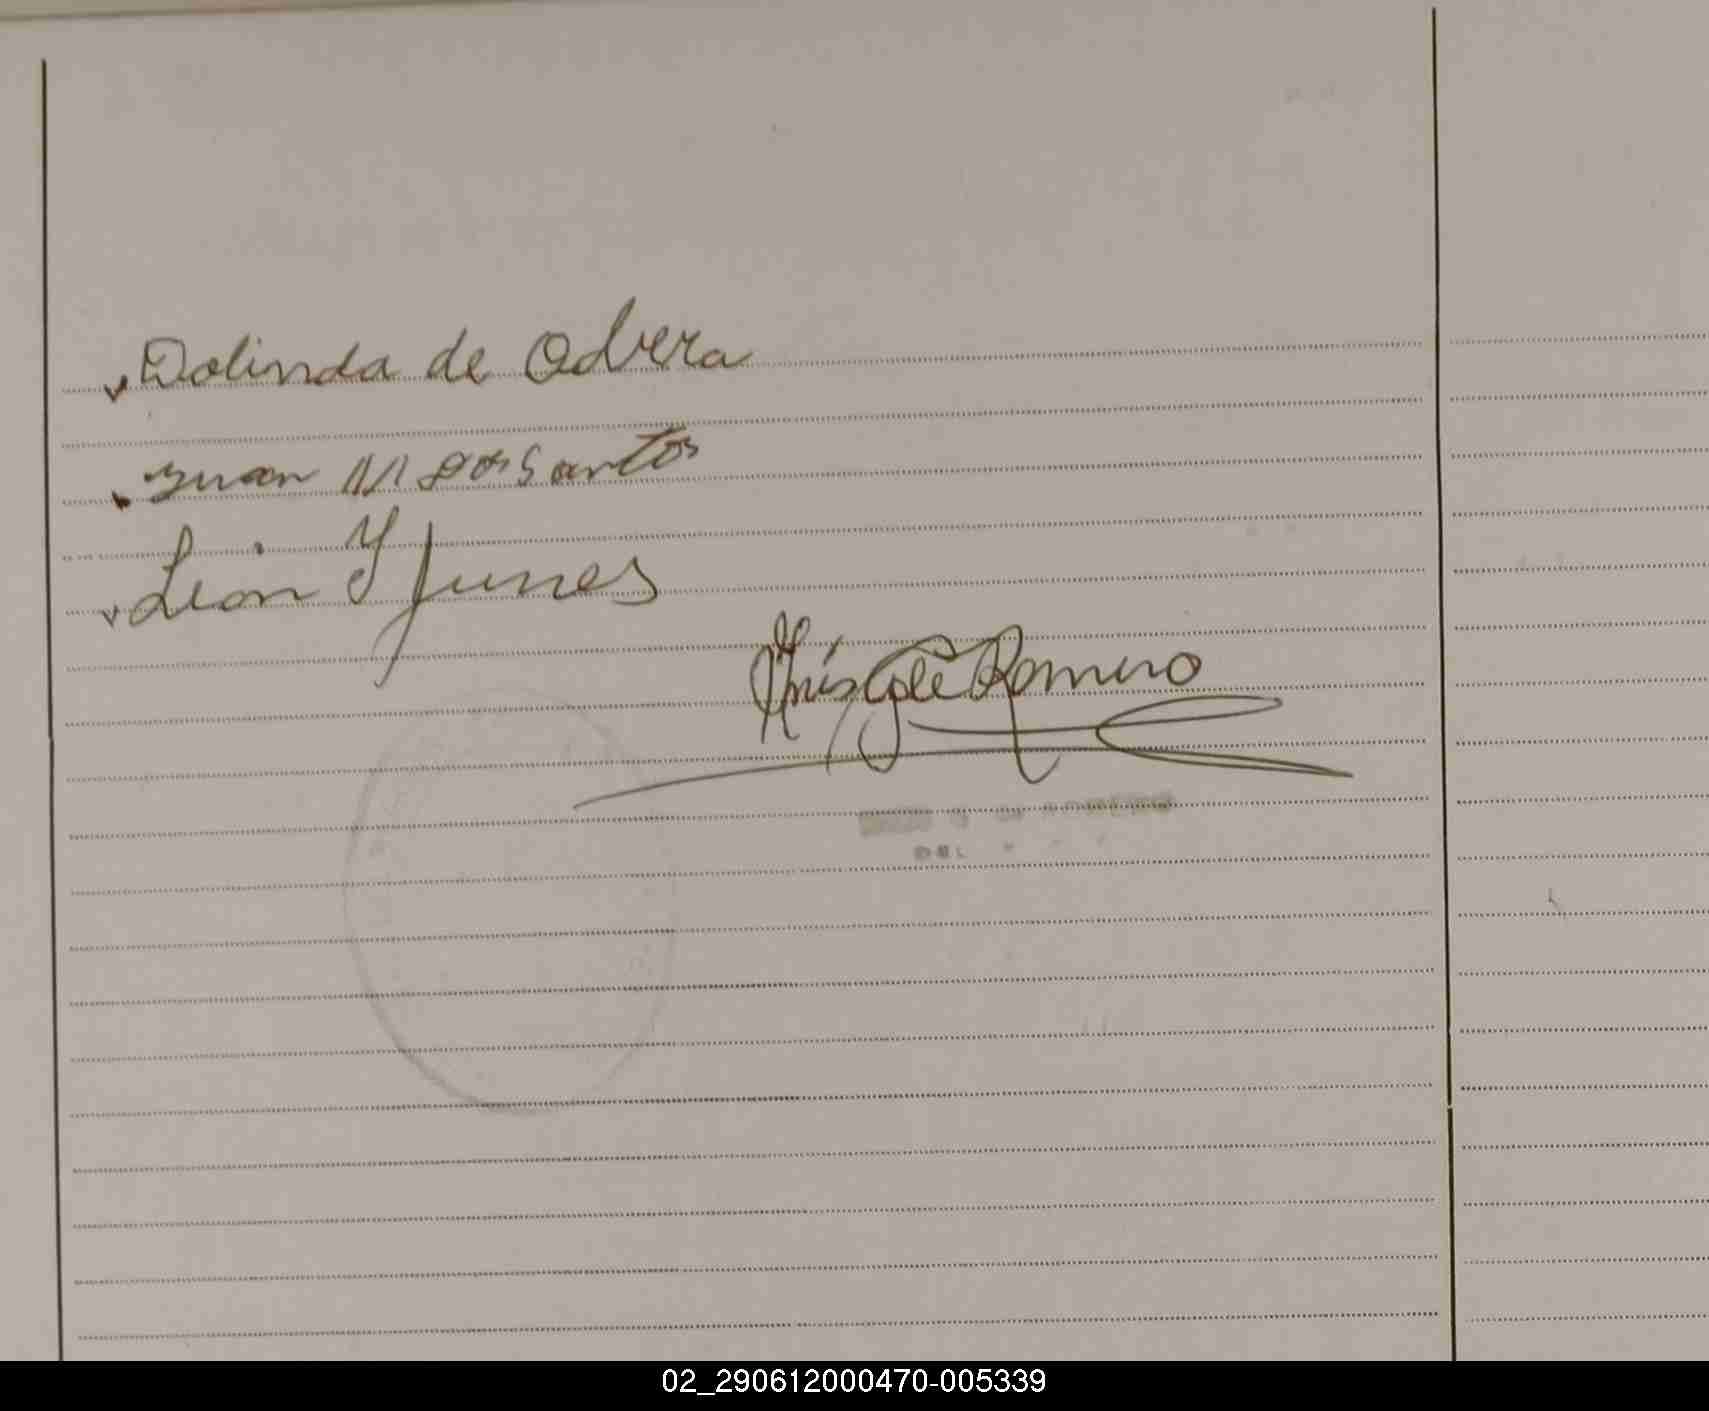 Dolinda de Olvera
Juan M dosSantos
León Y funes
Inés G de Romero
DEL
02_290612000470-005339